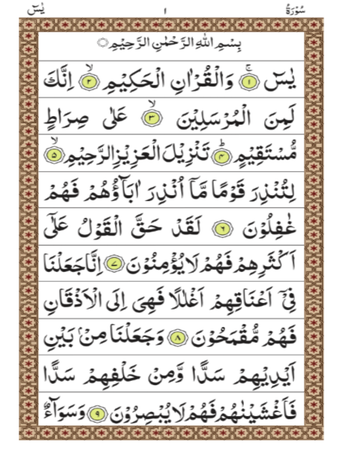 سُوْرَةُ ١ يٰسٓ
بِسْمِ اللهِ الرَّحْمٰنِ الرَّحِيْمِ ○
يٰسٓ ۚ‏﴿١﴾ وَالْقُرْاٰنِ الْحَكِيْمِ ۙ‏﴿٢﴾ اِنَّكَ
لَمِنَ الْمُرْسَلِيْنَ ۙ‏﴿٣﴾ عَلٰى صِرَاطٍ
مُّسْتَقِيْمٍ ؕ‏﴿٤﴾ تَنْزِيْلَ الْعَزِيْزِ الرَّحِيْمِ ۙ‏﴿٥﴾
لِتُنْذِرَ قَوْمًا مَّاۤ اُنْذِرَ اٰبَآؤُهُمْ فَهُمْ
غٰفِلُوْنَ ﴿٦﴾ لَقَدْ حَقَّ الْقَوْلُ عَلٰٓى
اَكْثَرِهِمْ فَهُمْ لَا يُؤْمِنُوْنَ ﴿٧﴾ اِنَّا جَعَلْنَا
فِىْۤ اَعْنَاقِهِمْ اَغْلٰلًا فَهِىَ اِلَى الْاَذْقَانِ
فَهُمْ مُّقْمَحُوْنَ ﴿٨﴾ وَجَعَلْنَا مِنْۢ بَيْنِ
اَيْدِيْهِمْ سَدًّا وَّمِنْ خَلْفِهِمْ سَدًّا
فَاَغْشَيْنٰهُمْ فَهُمْ لَا يُبْصِرُوْنَ ﴿٩﴾ وَسَوَآءٌ